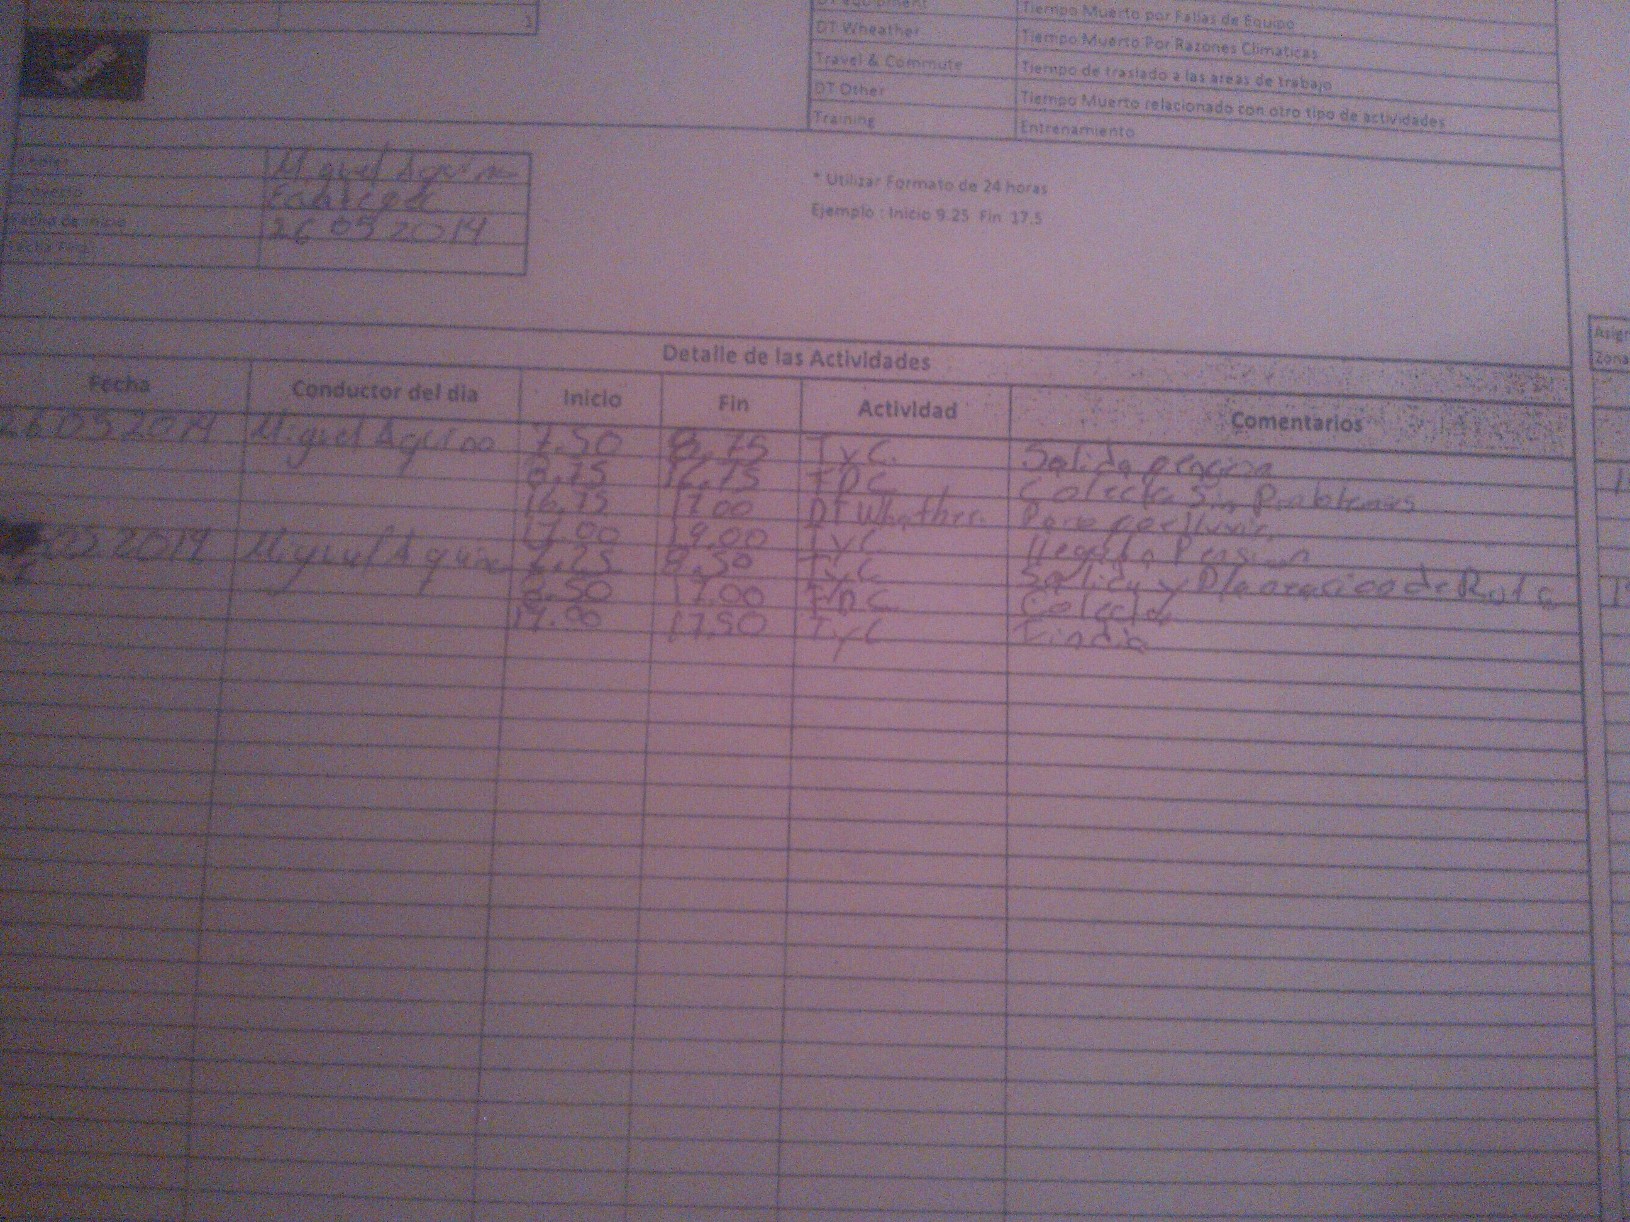 1
DT equipment Tiempo Muerto por Fallas de Equipo
DT Wheather Tiempo Muerto Por Razones Climaticas
Travel & Commute Tiempo de traslado a las areas de trabajo
DT Other Tiempo Muerto relacionado con otro tipo de actividades
Training Entrenamiento
Miguel Aquino
Proyecto
Fecha de Inicio 26 05 2014
Fecha Fin
* Utilizar Formato de 24 horas
Ejemplo : Inicio 9.25 Fin 17.5
Detalle de las Actividades
Fecha Conductor del dia Inicio Fin Actividad Comentarios
26 05 2014 Miguel Aquino 7.50 8.75 T y C. Salida pension
8.75 16.75 FDC Colecta Sin Problemas
16.75 17.00 DT Whather. Paro por lluvia
17.00 19.00 T y C llegada Pension
05 2014 Miguel Aquino 7.25 8.50 T y C Salida y Planeacion de Ruta
8.50 17.00 FDC Colecta
17.00 17.50 T y C Fin dia
Asig
Zona